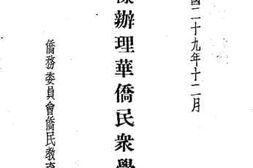 國二十九年十二月
樣辦理華僑民衆學
僑務委員會僑民教